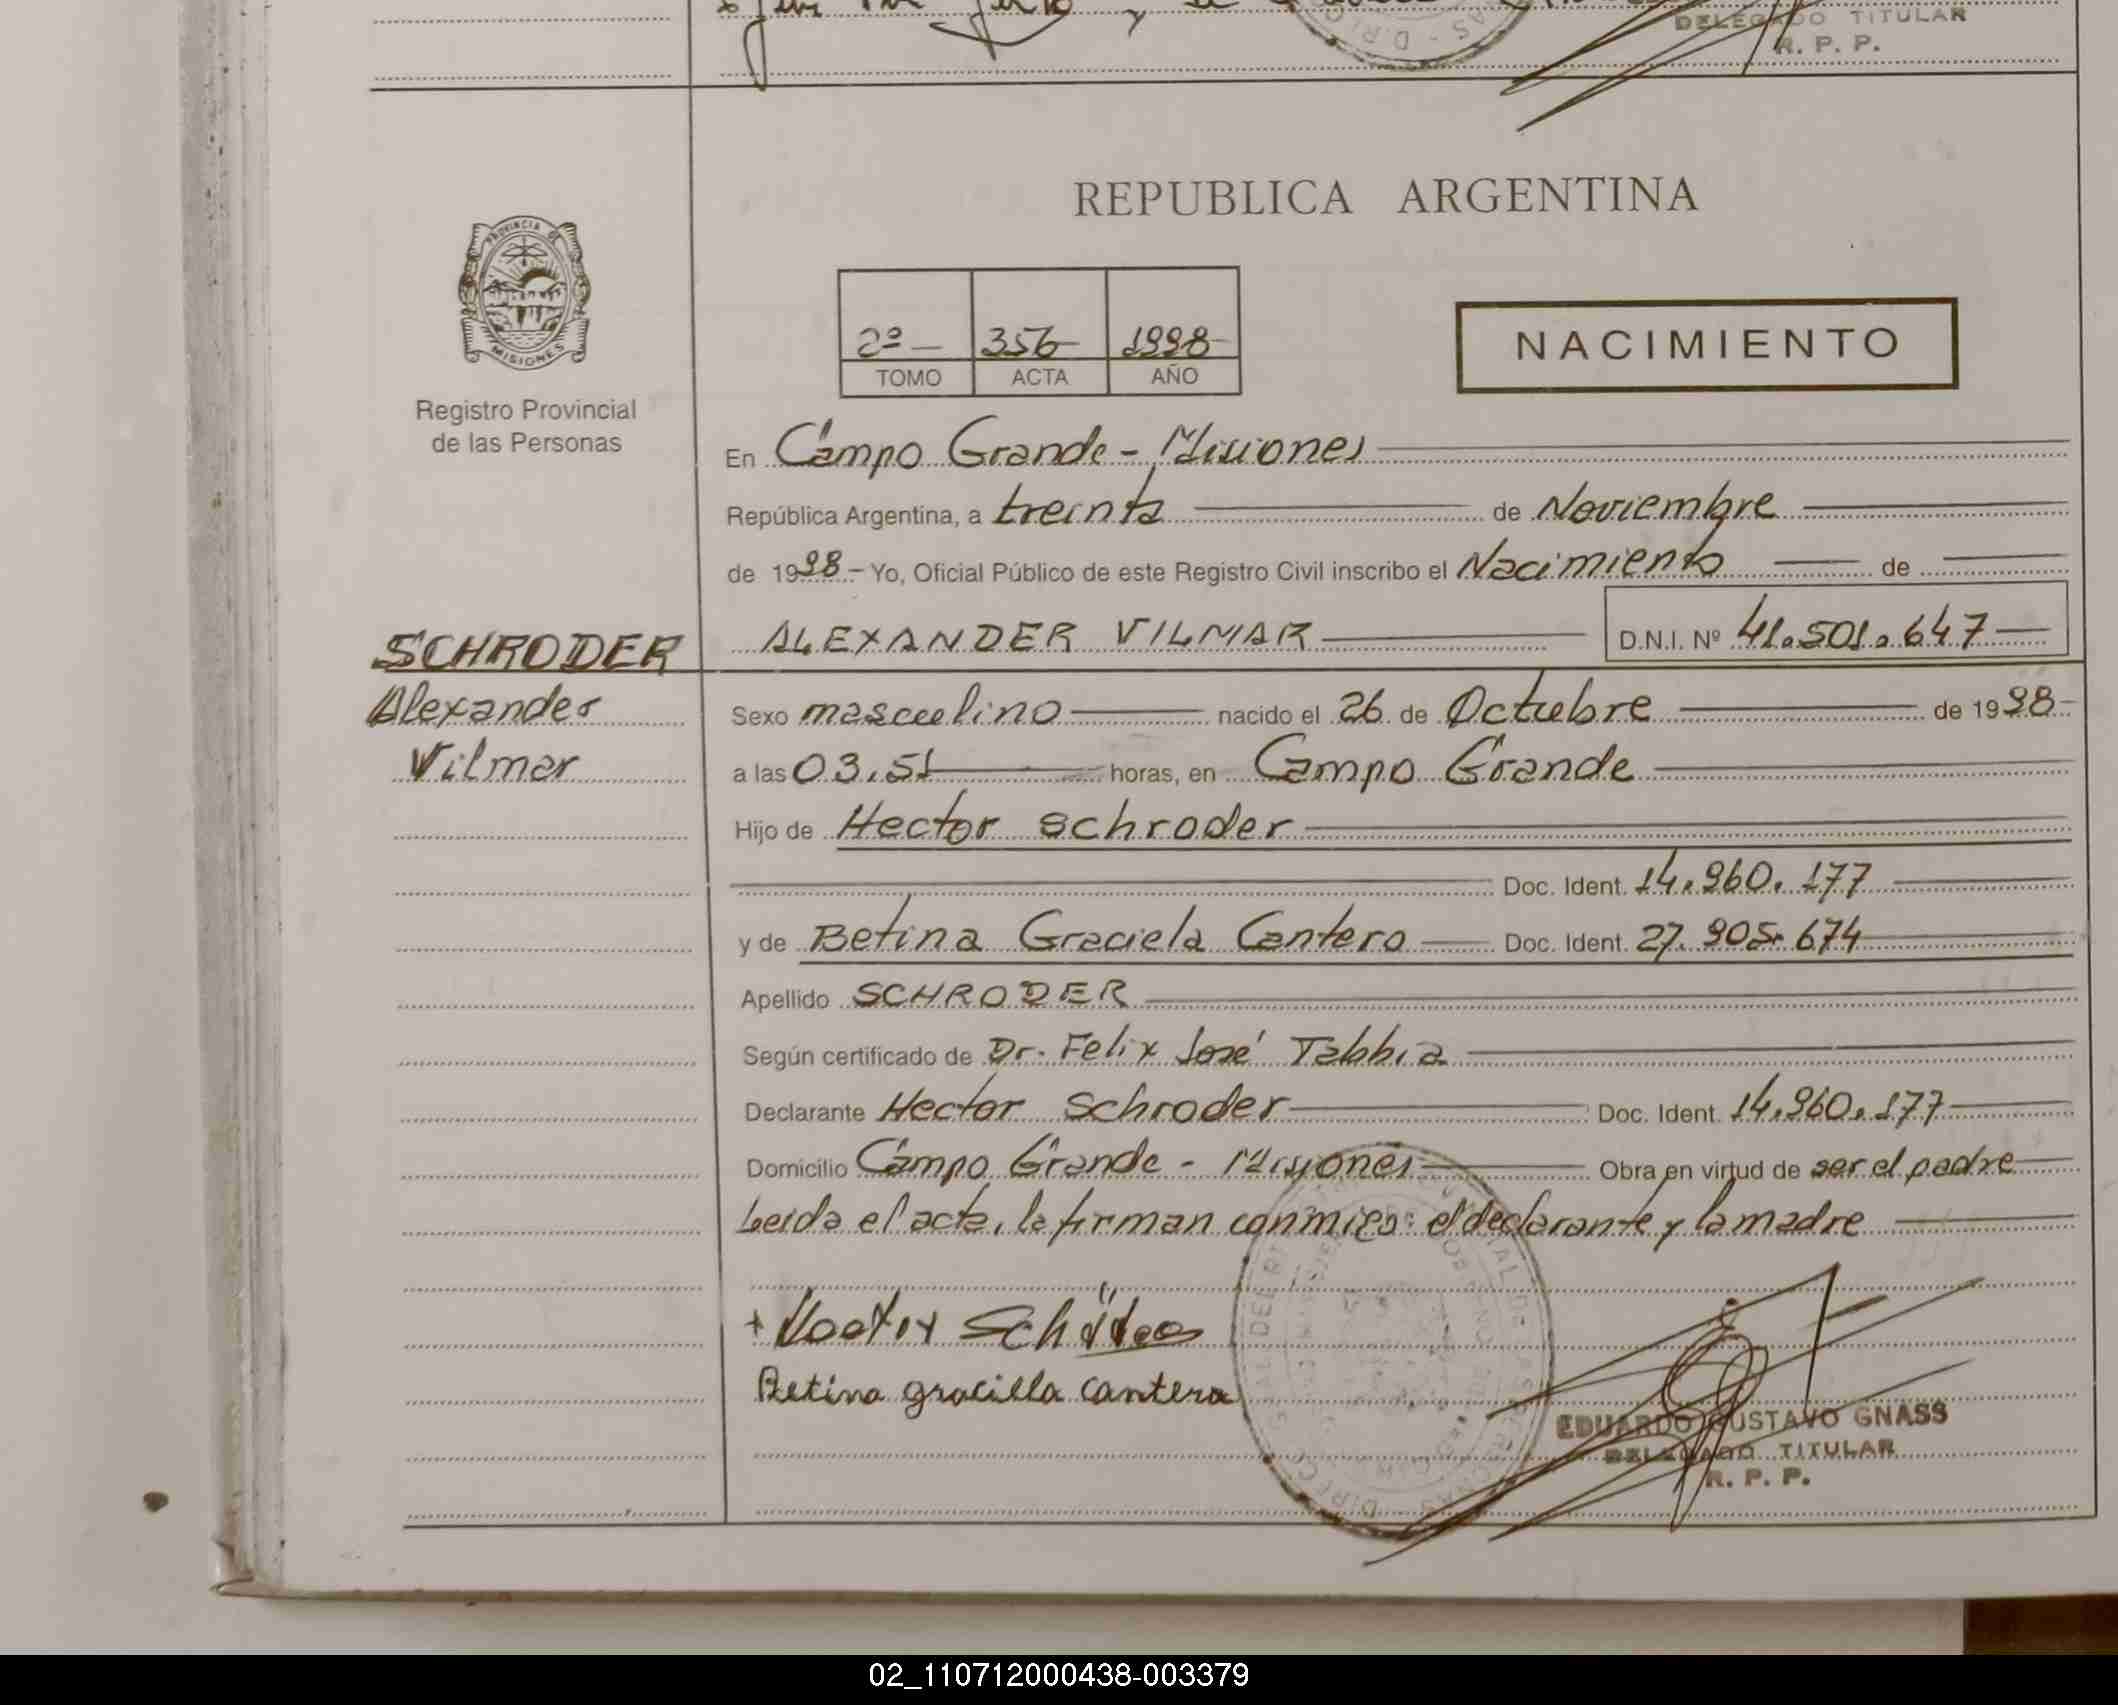 DELEGADO TITULAR
R. P. P.
PROVINCIA DE
MISIONES
Registro Provincial
de las Personas
REPUBLICA ARGENTINA
2º 356 1998
TOMO ACTA AÑO
NACIMIENTO
En Campo Grande - Misiones
República Argentina, a treinta de Noviembre
de 1998 - Yo, Oficial Público de este Registro Civil inscribo el Nacimiento de
SCHRODER ALEXANDER VILMAR D.N.I. Nº 41.501.647
Alexander Sexo masculino nacido el 26 de Octubre de 1998
Vilmar a las 03.51 horas, en Campo Grande
Hijo de Hector Schroder
Doc. Ident. 14.960.177
y de Betina Graciela Cantero Doc. Ident. 27.905.674
Apellido SCHRODER
Según certificado de Dr. Felix José Tabbia
Declarante Hector Schroder Doc. Ident. 14.960.177
Domicilio Campo Grande - Misiones Obra en virtud de ser el padre
Leida el acta, la firman conmigo: el declarante y la madre
Betina gracilla cantera
EDUARDO GUSTAVO GNASS
DELEGADO TITULAR
R. P. P.
02_110712000438-003379